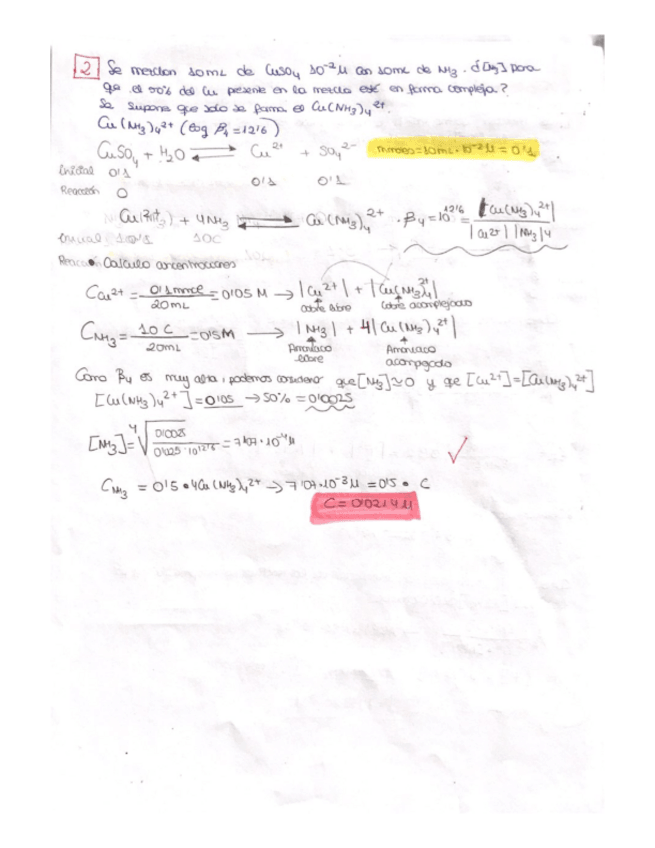 2 Se mezclan 10mL de CuSO4 10⁻²M con 10mL de NH3. ¿[NH3] para
que el 50% del Cu presente en la mezcla esté en forma compleja?
Se supone que solo se forma el Cu(NH3)4²⁺.
Cu(NH3)4²⁺ (log β4 = 12'6)
CuSO4 + H2O ⇌ Cu²⁺ + SO4²⁻ mmoles = 10mL · 10⁻²M = 0'1
Inicial 0'1
Reacción 0 0'1 0'1
+ 4NH3 ⇌ Cu(NH3)4²⁺ · β4 = 10^12'6 = |Cu(NH3)4²⁺| / |Cu²⁺| |NH3|4
Inicial 10C
Calculo concentraciones
C Cu²⁺ = 0'1 mmol / 20mL = 0'05 M → |Cu²⁺| + |Cu(NH3)4²⁺|
cobre libre cobre acomplejado
C NH3 = 10 C / 20mL = 0'5M → |NH3| + 4|Cu(NH3)4²⁺|
Amoniaco libre Amoniaco acomplejado
Como β4 es muy alta, podemos considerar que [NH3] ≃ 0 y que [Cu²⁺] = [Cu(NH3)4²⁺]
[Cu(NH3)4²⁺] = 0'05 → 50% = 0'0025
[NH3] = ⁴√ 0'0025 / 0'0025 · 10^12'6 = 7'07 · 10⁻⁴M
C NH3 = 0'5 · 4Cu(NH3)4²⁺ → 7'07 · 10⁻³M = 0'5 · C
C = 0'0214M